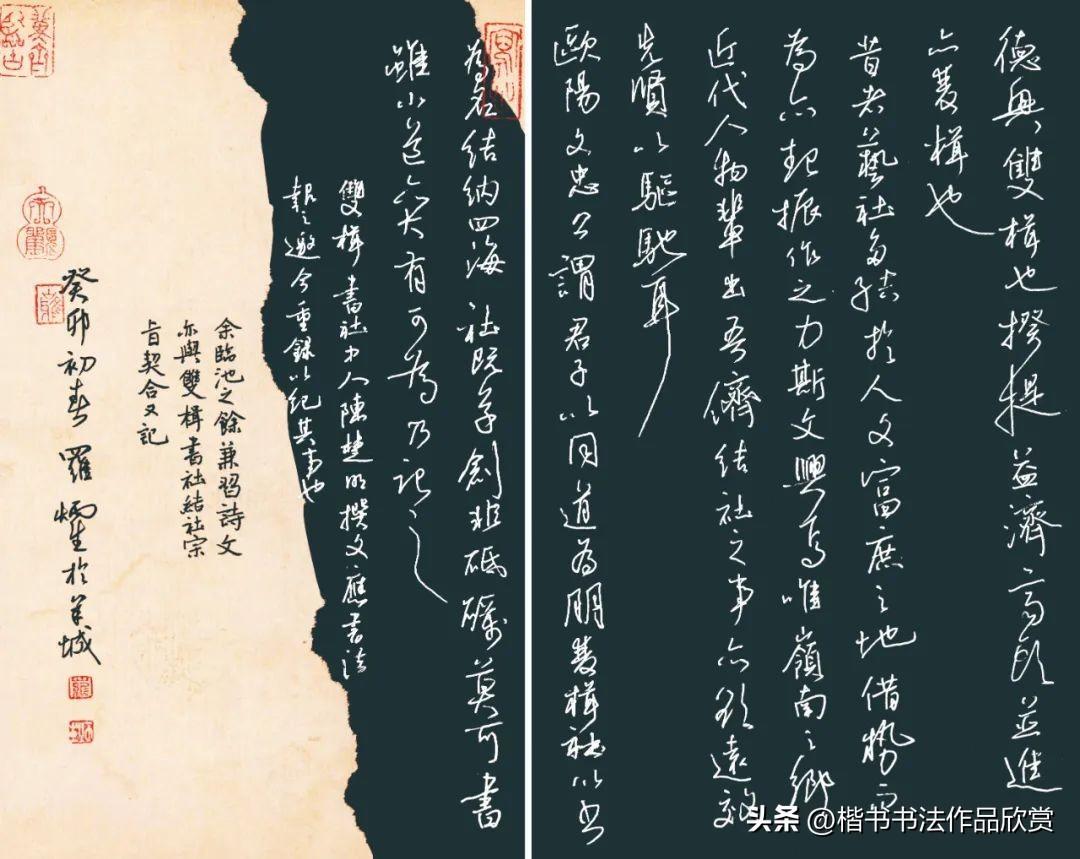 德與雙楫也揆楫益濟並進
亦雙楫也
昔者藝社多結於人文富庶之地借勢而
為亦起振作之力斯文興焉唯嶺南之鄉
近代人物輩出吾儕結社之事亦欲遠效
先賢以驅馳耳
歐陽文忠公謂君子以同道為朋雙楫社以書
為名結納四海社既草創非砥礪莫可書
雖小道亦大有可為乃記之
雙楫書社中人陳楚明撰文應書法
報之邀今重錄以紀其事也
余臨池之餘兼習詩文
亦與雙楫書社結社宗
旨契合又記
癸卯初春羅於羊城
头条 @楷书书法作品欣赏